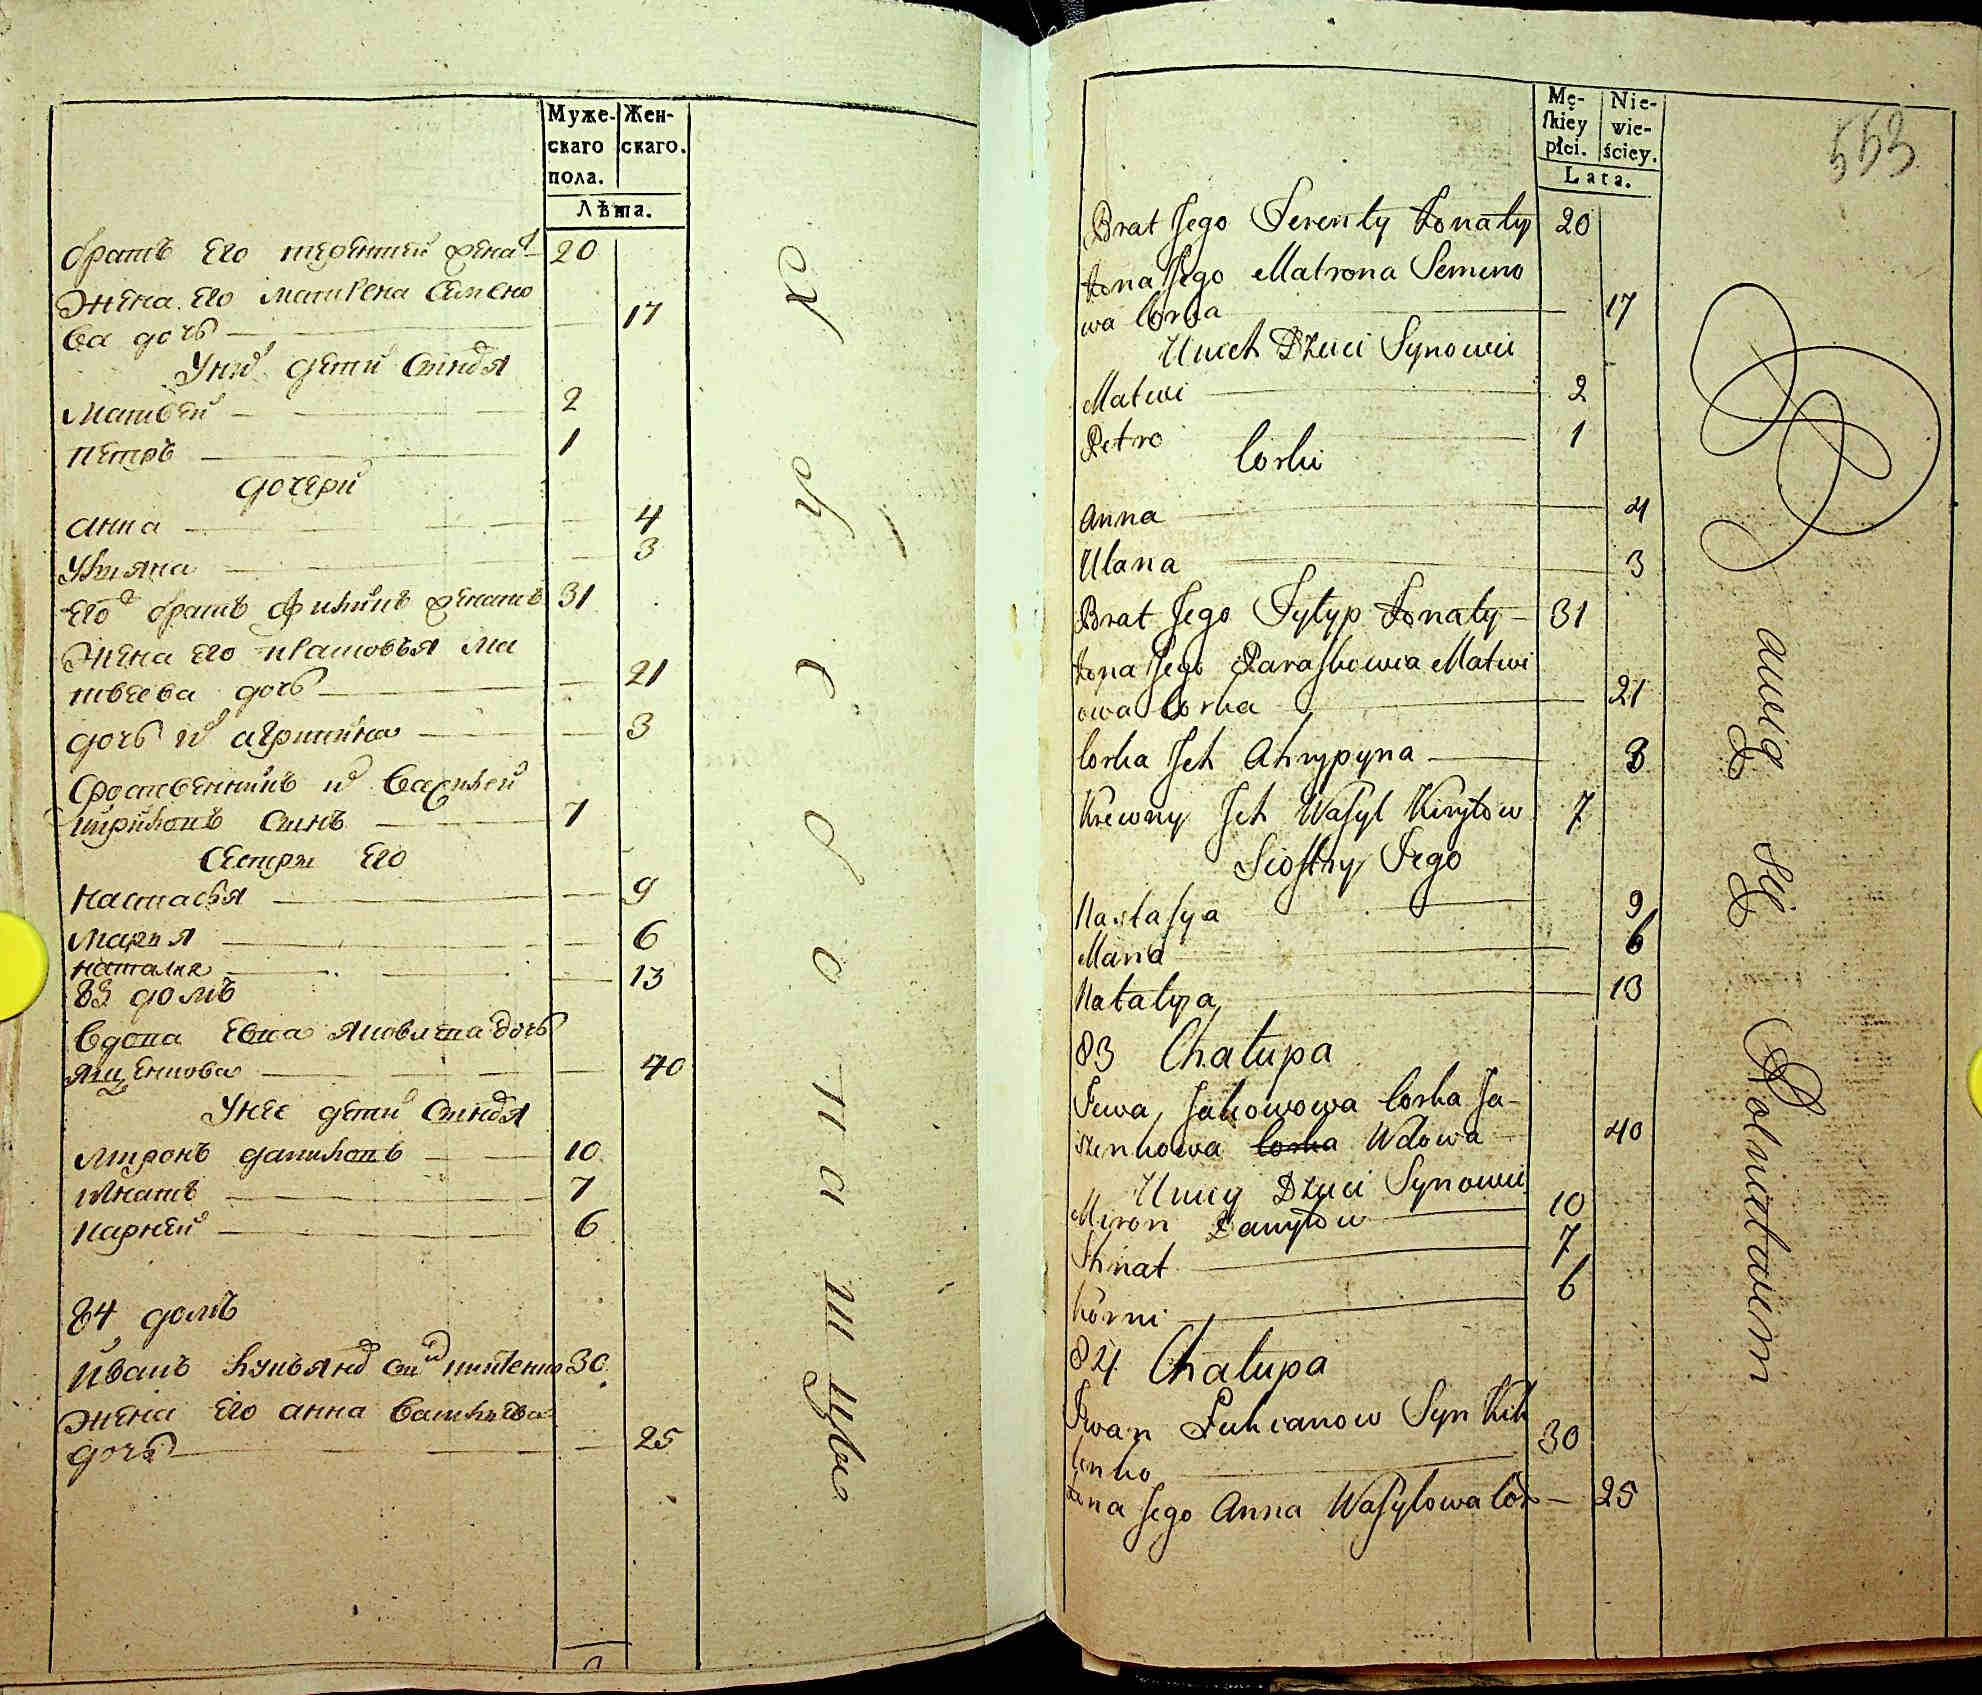 Муже-
скаго
пола.
Жен-
скаго.
Лѣта.
братъ его терентей женат 20
жена его матрена семено
ва дочь 17
У них дети сыновья
Матвей 2
петръ 1
дочери
анна 4
Ульяна 3
его братъ филипъ женатъ 31
жена его прасковья ма
твеева дочь 21
дочь их агрипина 3
сродственникъ их василей
кириловъ сынъ 7
Сестры его
настасья 9
Марья 6
наталия 13
83 домъ
вдова евва яковлева дочь
ященкова 40
У нее дети сыновья
миронъ даниловъ 10
игнатъ 7
карней 6
84 домъ
Иванъ лукьянов сын 30
жена его анна васильева
дочь 25
Mę-
ſkiey
płci.
Nie-
wie-
ściey.
Lata.
553
Brat Jego Terenty Żonaty 20
Żona Jego Matrona Semeno
wa Corka 17
U nich Dzieci Synowie
Matwi 2
Petro 1
Corki
Anna 4
Ulana 3
Brat Jego Fylyp Żonaty 31
Żona Jego Paraſkowia Matwi
owa Corka 21
Corka Jch Ahrypyna 3
Krewny Jch Waſyl Kiryłow 7
Sioſtry Jego
Nastaſya 9
Maria 6
Natalya 13
83 Chałupa
Jewa Jakowowa Corka Ja-
szenkowa Corka Wdowa 40
U niey Dzieci Synowie
Miron Danyłow 10
Ihnat 7
Korni 6
84 Chałupa
Iwan Łukianow Syn Kik
tenko 30
Żona Jego Anna Waſylowa Cór 25
awią się Rolnictwem